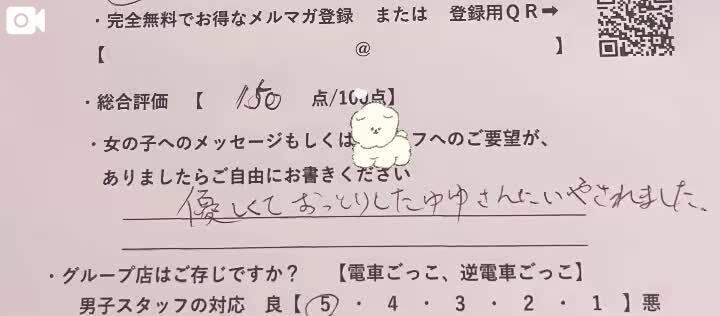 ・完全無料でお得なメルマガ登録　または　登録用ＱＲ➡
【　@　】
・総合評価　【　150　点/100点】
・女の子へのメッセージもしくは フへのご要望が、
ありましたらご自由にお書きください
優しくておっとりしたゆゆさんにいやされました。
・グループ店はご存じですか？　【電車ごっこ、逆電車ごっこ】
男子スタッフの対応　良【 5 ・ 4 ・ 3 ・ 2 ・ 1 】悪